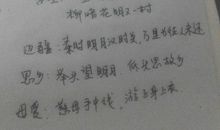 柳暗花明又一村
边塞：秦时明月汉时关，万里长征人未还
思乡：举头望明月，低头思故乡
母爱：慈母手中线，游子身上衣